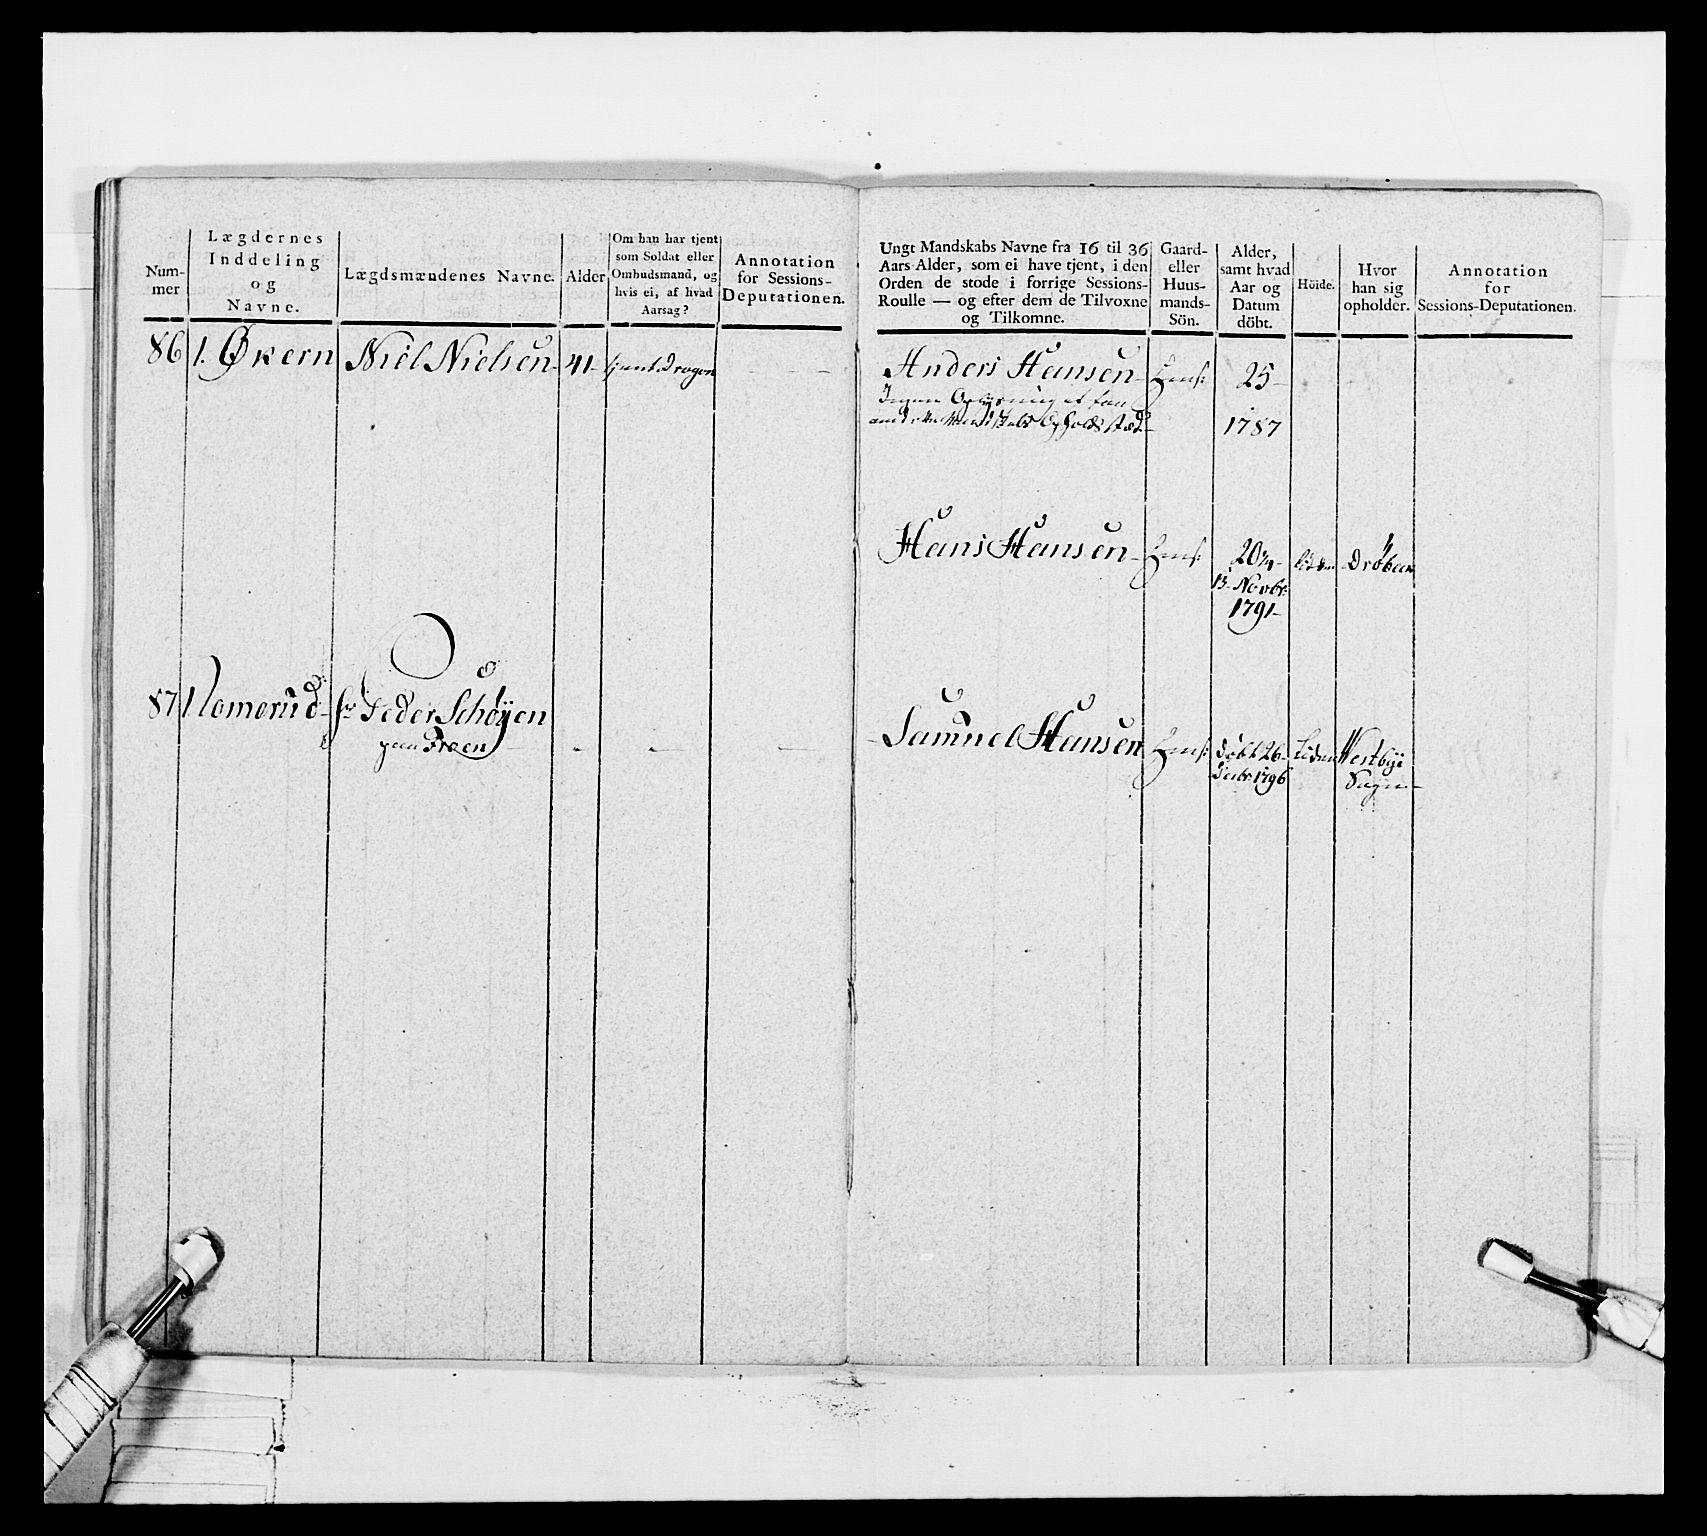 Num-
mer
Lægdernes
Inddeling
og
Navne.
Lægdsmændenes Navne.
Alder
Om han har tjent
som Soldat eller
Ombudsmand, og
hvis ei, af hvad
Aarsag?
Annotation
for Sessions-
Deputationen.
86 1. Økern Niel Nielsen 41 tient Dragon
87 1 Peder Schøyen
paa Froen
Ungt Mandskabs Navne fra 16 til 36
Aars Alder, som ei have tjent, i den
Orden de stode i forrige Sessions-
Roulle — og efter dem de Tilvoxne
og Tilkomne.
Gaard-
eller
Huus-
mands-
Sön.
Alder,
samt hvad
Aar og
Datum
döbt.
Höide.
Hvor
han sig
opholder.
Annotation
for
Sessions-Deputationen.
Anders Hansen 25
Ingen Oplysning at faae
1787
Hans Hansen 20¾ Drøbak
13 Novbr:
1791
Samuel Hansen døbt 26 Westbye
1796 Sogn